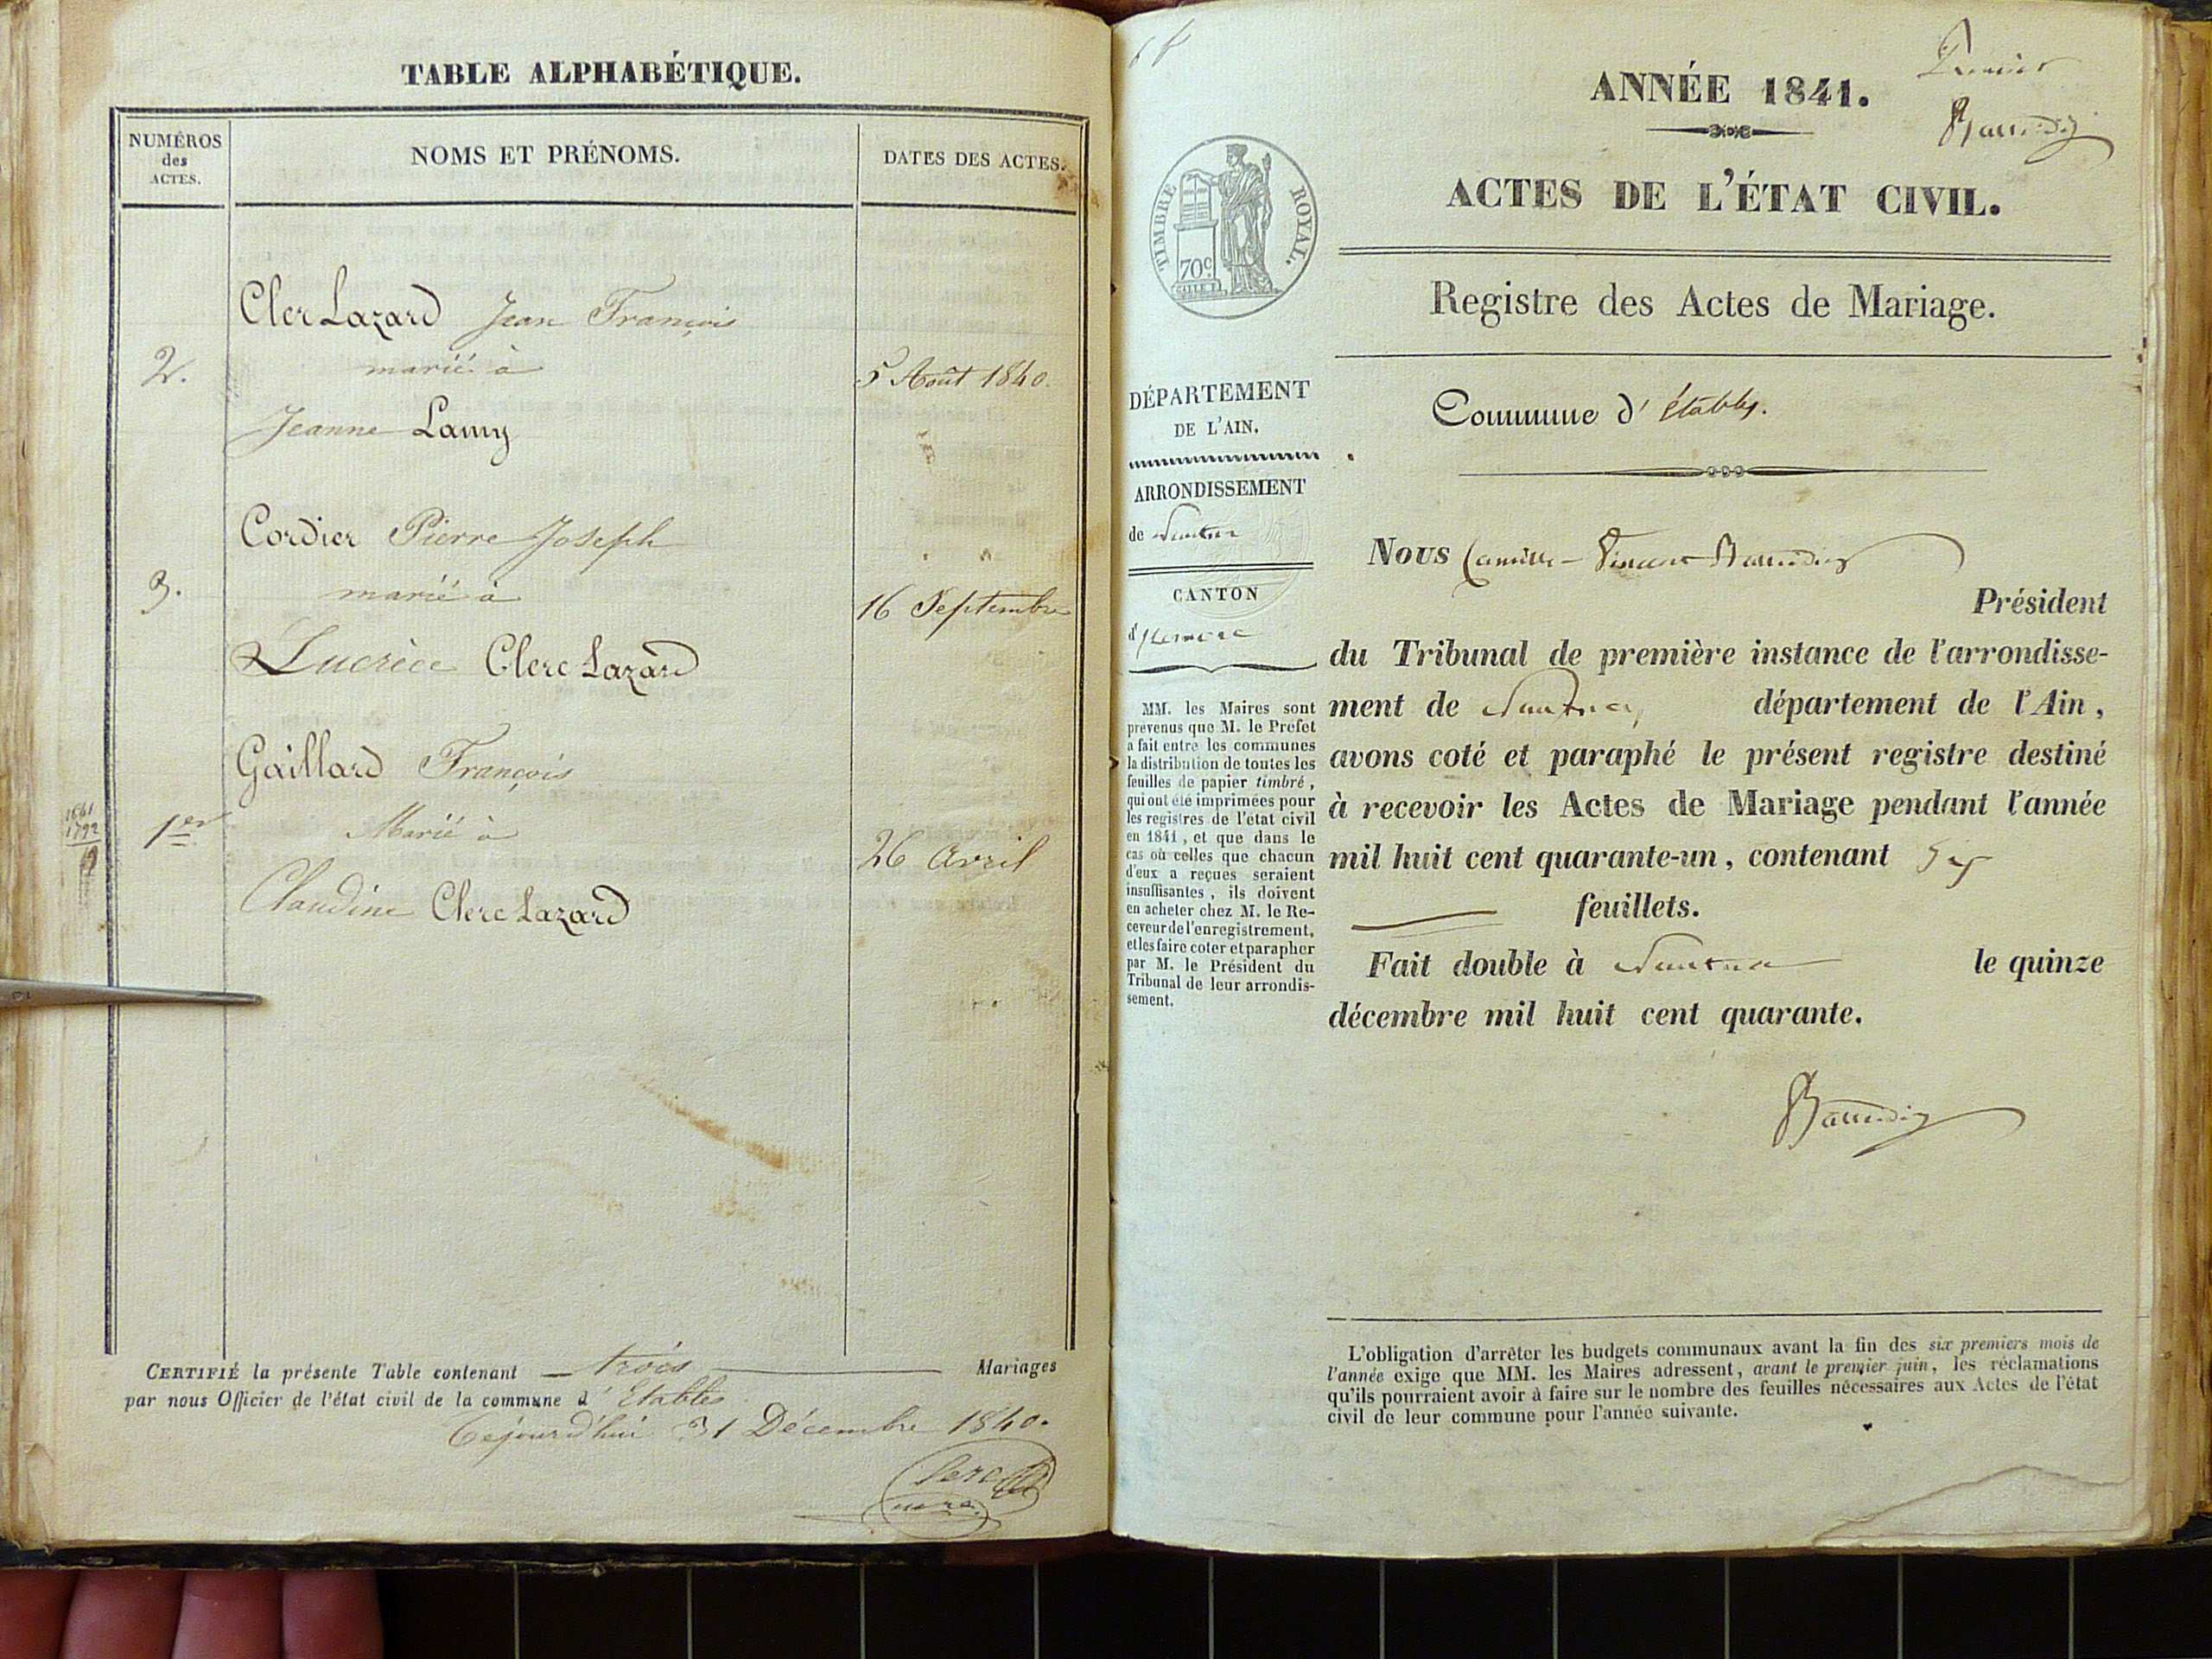 TABLE ALPHABÉTIQUE.
NUMÉROS
des
ACTES.
NOMS ET PRÉNOMS.
DATES DES ACTES.
Cler Lazard Jean François
2.
marié à
5 Août 1840.
Jeanne Lamy
Cordier Pierre Joseph
3.
marié à
16 Septembre
Lucrèce Clerc Lazard
Gaillard François
1er
Marié à
26 Avril
Claudine Clerc Lazard
CERTIFIÉ la présente Table contenant trois Mariages
par nous Officier de l'état civil de la commune d'Etables
Cejourd'hui 31 Décembre 1840.
Clerc
maire
Premier
ANNÉE 1841.
ACTES DE L'ÉTAT CIVIL.
Registre des Actes de Mariage.
TIMBRE ROYAL.
70c
DÉPARTEMENT
DE L'AIN.
ARRONDISSEMENT
de Nantua
CANTON
MM. les Maires sont
prévenus que M. le Préfet
a fait entre les communes
la distribution de toutes les
feuilles de papier timbré,
qui ont été imprimées pour
les registres de l'état civil
en 1841, et que dans le
cas où celles que chacun
d'eux a reçues seraient
insuffisantes, ils doivent
en acheter chez M. le Re-
ceveur de l'enregistrement,
et les faire coter et parapher
par M. le Président du
Tribunal de leur arrondis-
sement.
Commune d'Étables.
Nous Camille Vincent
Président
du Tribunal de première instance de l'arrondisse-
ment de Nantua, département de l'Ain,
avons coté et paraphé le présent registre destiné
à recevoir les Actes de Mariage pendant l'année
mil huit cent quarante-un, contenant
feuillets.
Fait double à Nantua le quinze
décembre mil huit cent quarante.
L'obligation d'arrêter les budgets communaux avant la fin des six premiers mois de
l'année exige que MM. les Maires adressent, avant le premier juin, les réclamations
qu'ils pourraient avoir à faire sur le nombre des feuilles nécessaires aux Actes de l'état
civil de leur commune pour l'année suivante.